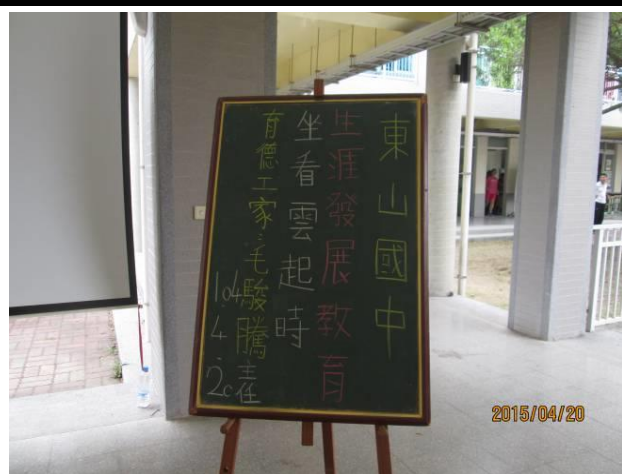 東山國中
生涯發展教育
坐看雲起時
育德工家：毛駿騰主任
104.4.20
2015/04/20